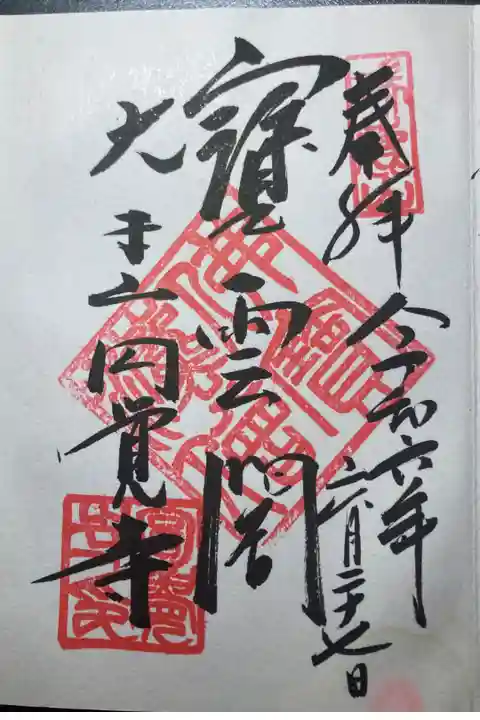 奉拝 令和六年
月二十七日
寶雲閣
大本山円覚寺